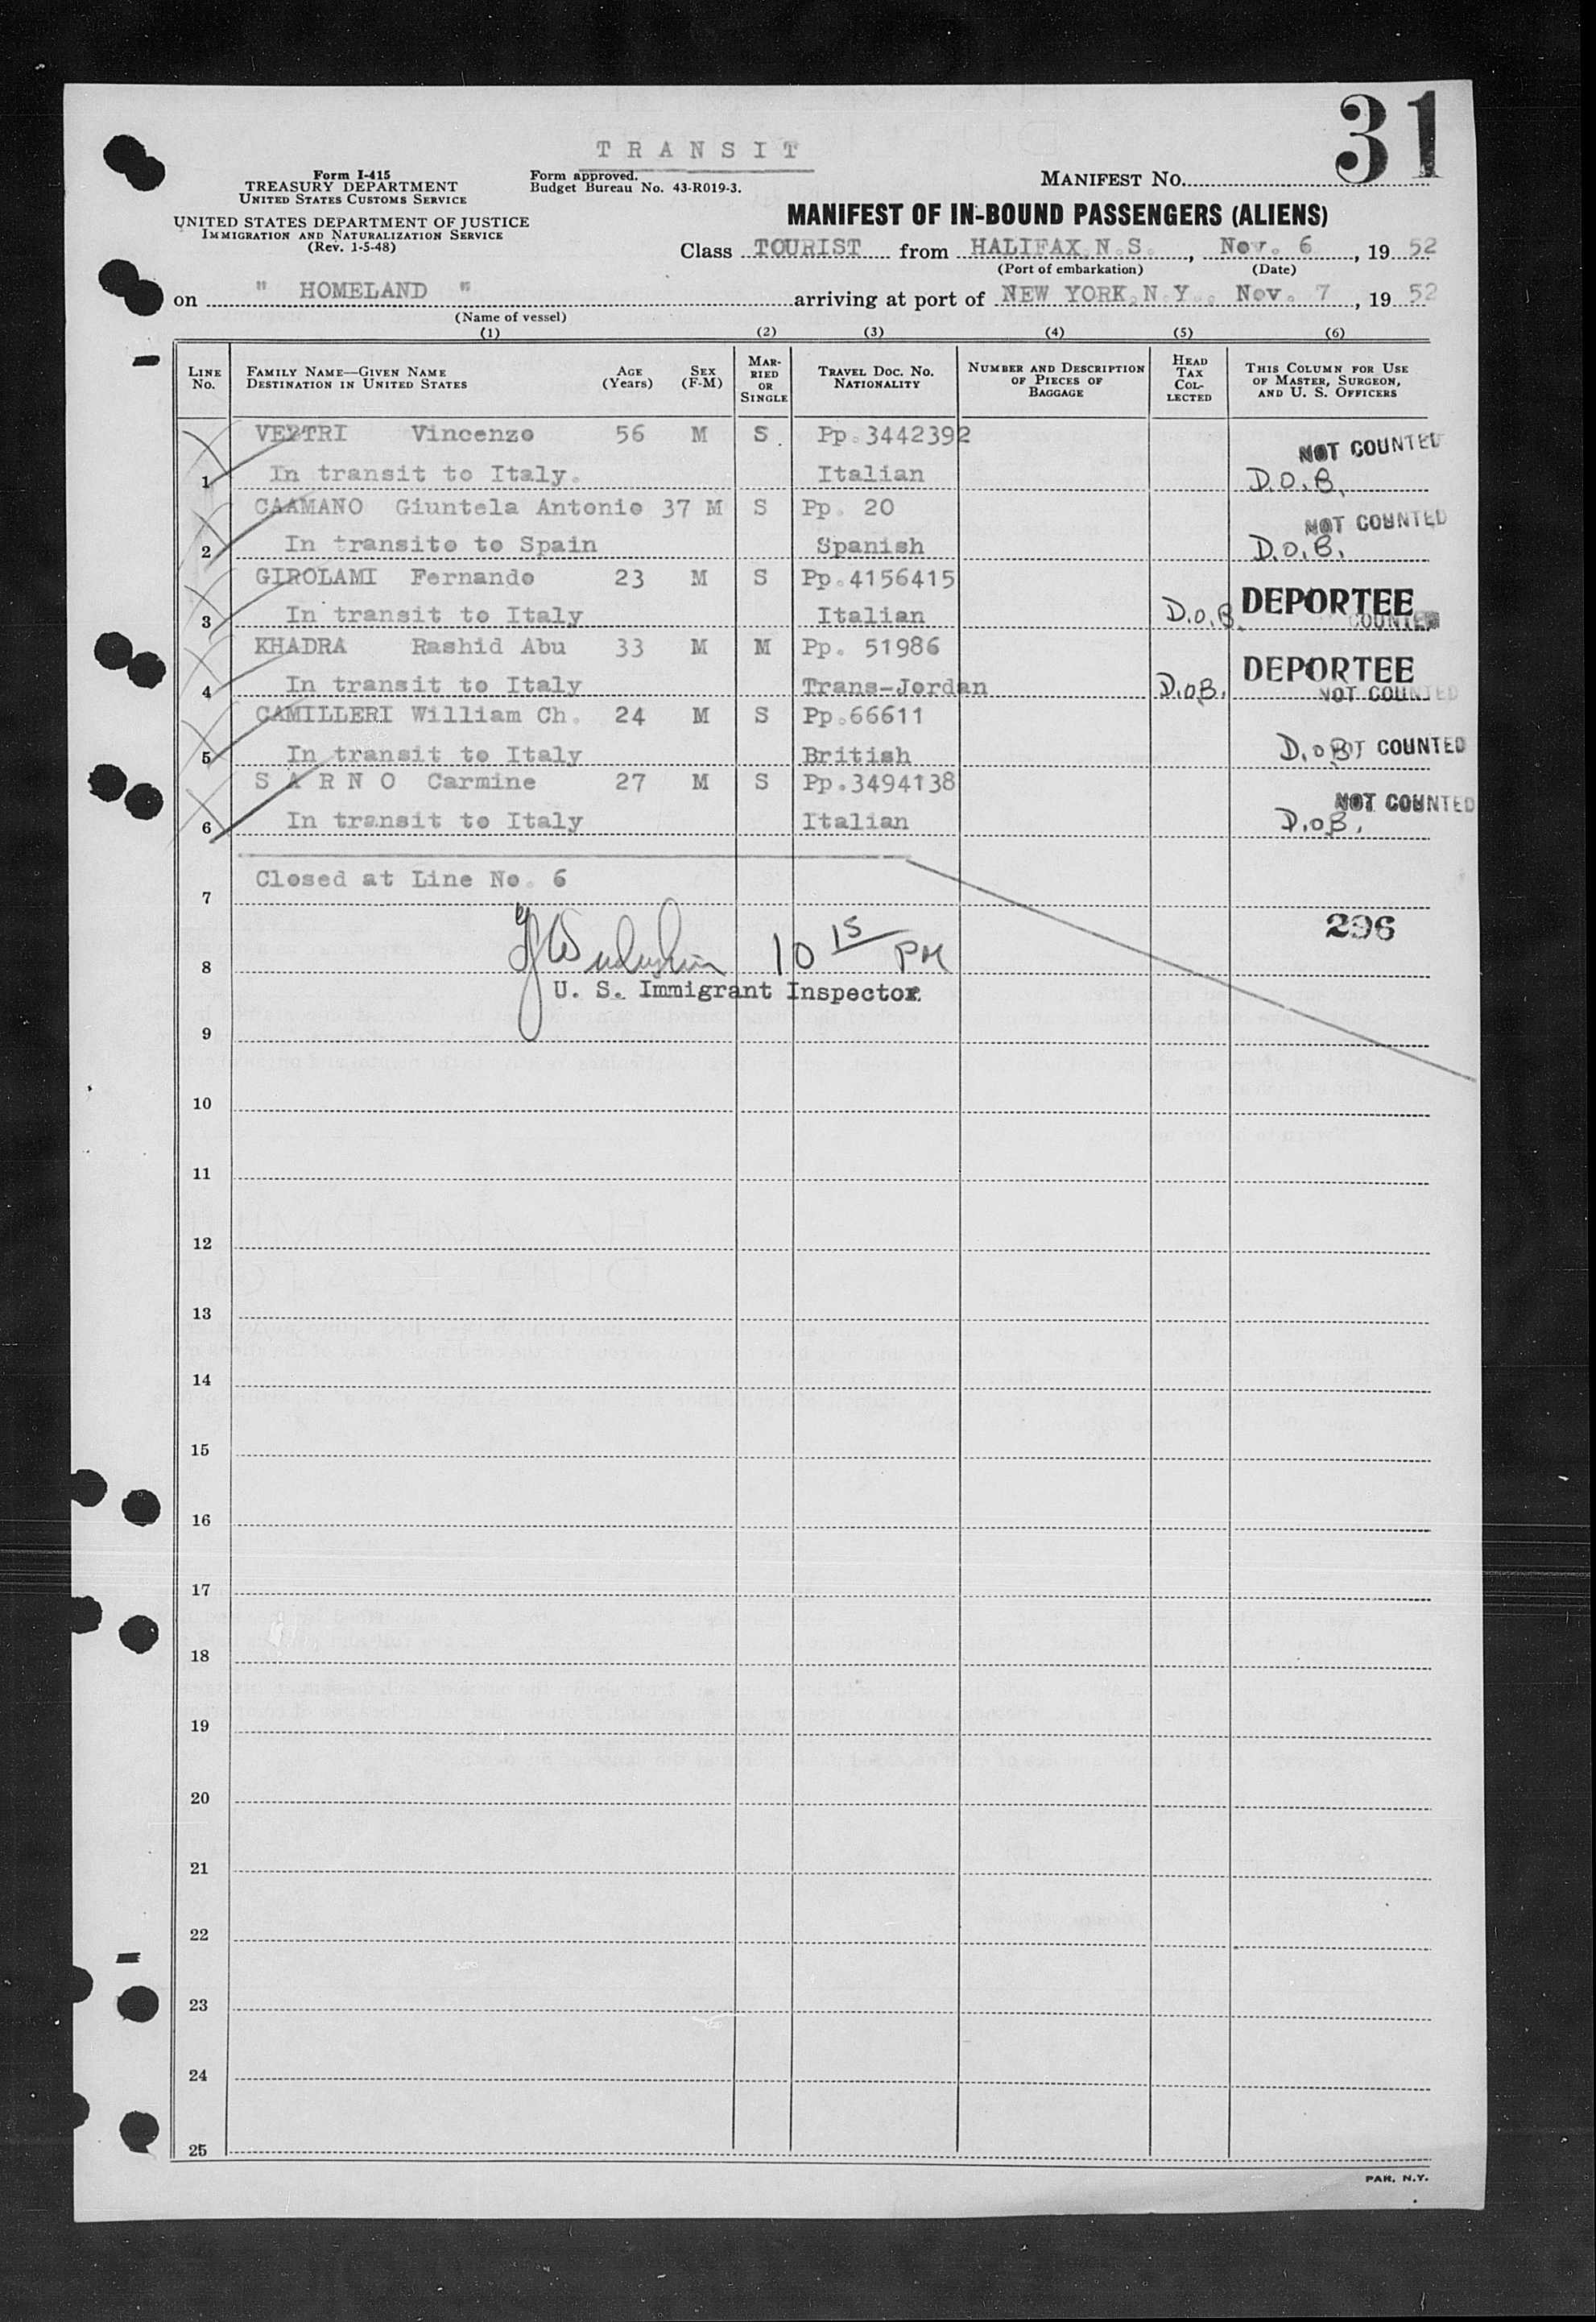 31
T R A N S I T
Form I-415
TREASURY DEPARTMENT
UNITED STATES CUSTOMS SERVICE
Form approved.
Budget Bureau No. 43-R019-3.
MANIFEST NO.
UNITED STATES DEPARTMENT OF JUSTICE
IMMIGRATION AND NATURALIZATION SERVICE
(Rev. 1-5-48)
MANIFEST OF IN-BOUND PASSENGERS (ALIENS)
Class TOURIST from HALIFAX.N.S. , Nov. 6 , 19 52
(Port of embarkation) (Date)
on " HOMELAND " arriving at port of NEW YORK,N.Y.. Nov. 7 , 19 52
(Name of vessel)
(1) (2) (3) (4) (5) (6)
LINE No. FAMILY NAME—GIVEN NAME DESTINATION IN UNITED STATES AGE (Years) SEX (F-M) MARRIED OR SINGLE TRAVEL DOC. NO. NATIONALITY NUMBER AND DESCRIPTION OF PIECES OF BAGGAGE HEAD TAX COLLECTED THIS COLUMN FOR USE OF MASTER, SURGEON, AND U. S. OFFICERS
VERTRI Vincenzo 56 M S . Pp.3442392 NOT COUNTED
1 In transit to Italy. Italian D.O.B.
CAAMANO Giuntela Antonio 37 M S Pp. 20 NOT COUNTED
2 In transito to Spain Spanish D.O.B.
GIROLAMI Fernando 23 M S Pp.4156415 DEPORTEE
3 In transit to Italy Italian D.O.B. COUNTED
KHADRA Rashid Abu 33 M M Pp. 51986 DEPORTEE
4 In transit to Italy Trans-Jordan D.O.B. NOT COUNTED
CAMILLERI William Ch. 24 M S Pp.66611
5 In transit to Italy British D.O.B. NOT COUNTED
S A R N O Carmine 27 M S Pp.3494138 NOT COUNTED
6 In transit to Italy Italian D.O.B.
Closed at Line No. 6
7
296
8 10 15 PM
U. S. Immigrant Inspector
9
10
11
12
13
14
15
16
17
18
19
20
21
22
23
24
25
PAN, N.Y.